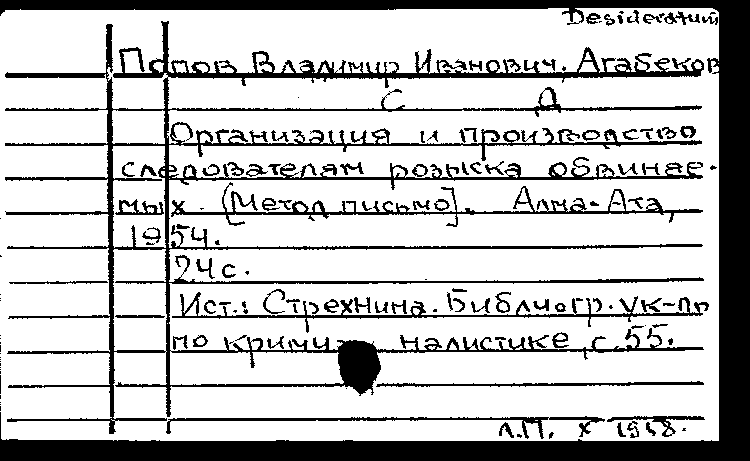 Desideratum
Попов, Владимир Иванович. Агабеков
С Д
Организация и производство
следователям розыска обвиняе-
мых. [Метод. письмо]. Алма-Ата,
1954.
24 с.
Ист.: Стрехнина. Библиогр. ук-ль
по крими налистике, с. 55.
Л.П. X